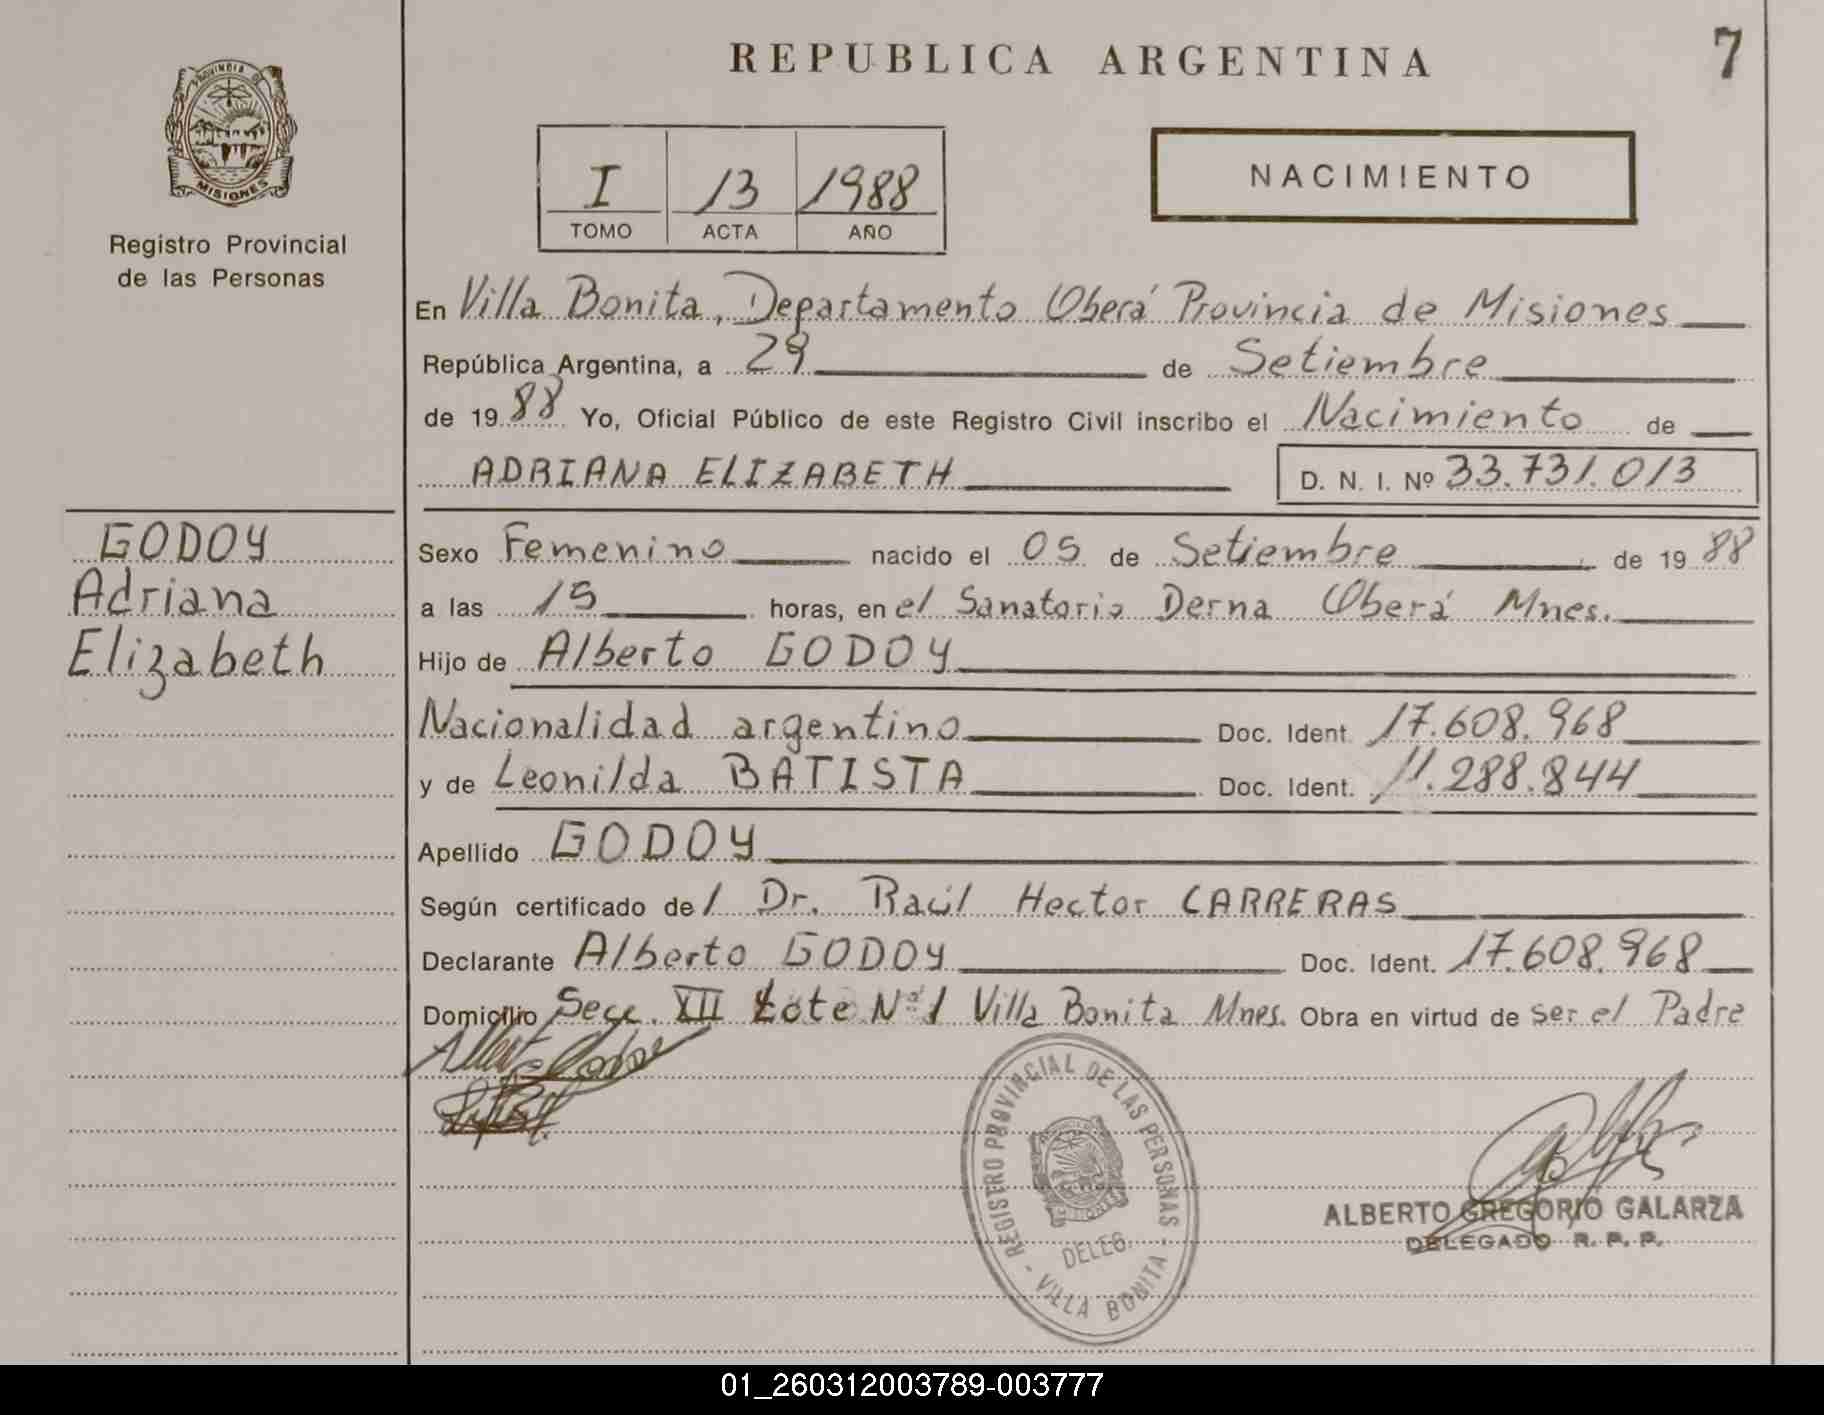 REPUBLICA ARGENTINA
7
PROVINCIA DE
MISIONES
Registro Provincial
de las Personas
I 13 1988
TOMO ACTA AÑO
NACIMIENTO
En Villa Bonita, Departamento Oberá Provincia de Misiones
República Argentina, a 29 de Setiembre
de 1988 Yo, Oficial Público de este Registro Civil inscribo el Nacimiento de
ADRIANA ELIZABETH D. N. I. Nº 33.731.013
GODOY
Adriana
Elizabeth
Sexo Femenino nacido el 05 de Setiembre de 1988
a las 15 horas, en el Sanatorio Derna Oberá Mnes.
Hijo de Alberto GODOY
Nacionalidad argentino Doc. Ident. 17.608.968
y de Leonilda BATISTA Doc. Ident. 11.288.844
Apellido GODOY
Según certificado del Dr. Raúl Hector CARRERAS
Declarante Alberto GODOY Doc. Ident. 17.608.968
Domicilio Secc. XII Lote Nº 1 Villa Bonita Mnes. Obra en virtud de ser el Padre
REGISTRO PROVINCIAL DE LAS PERSONAS
DELEG.
- VILLA BONITA -
ALBERTO GREGORIO GALARZA
DELEGADO R. P. P.
01_260312003789-003777